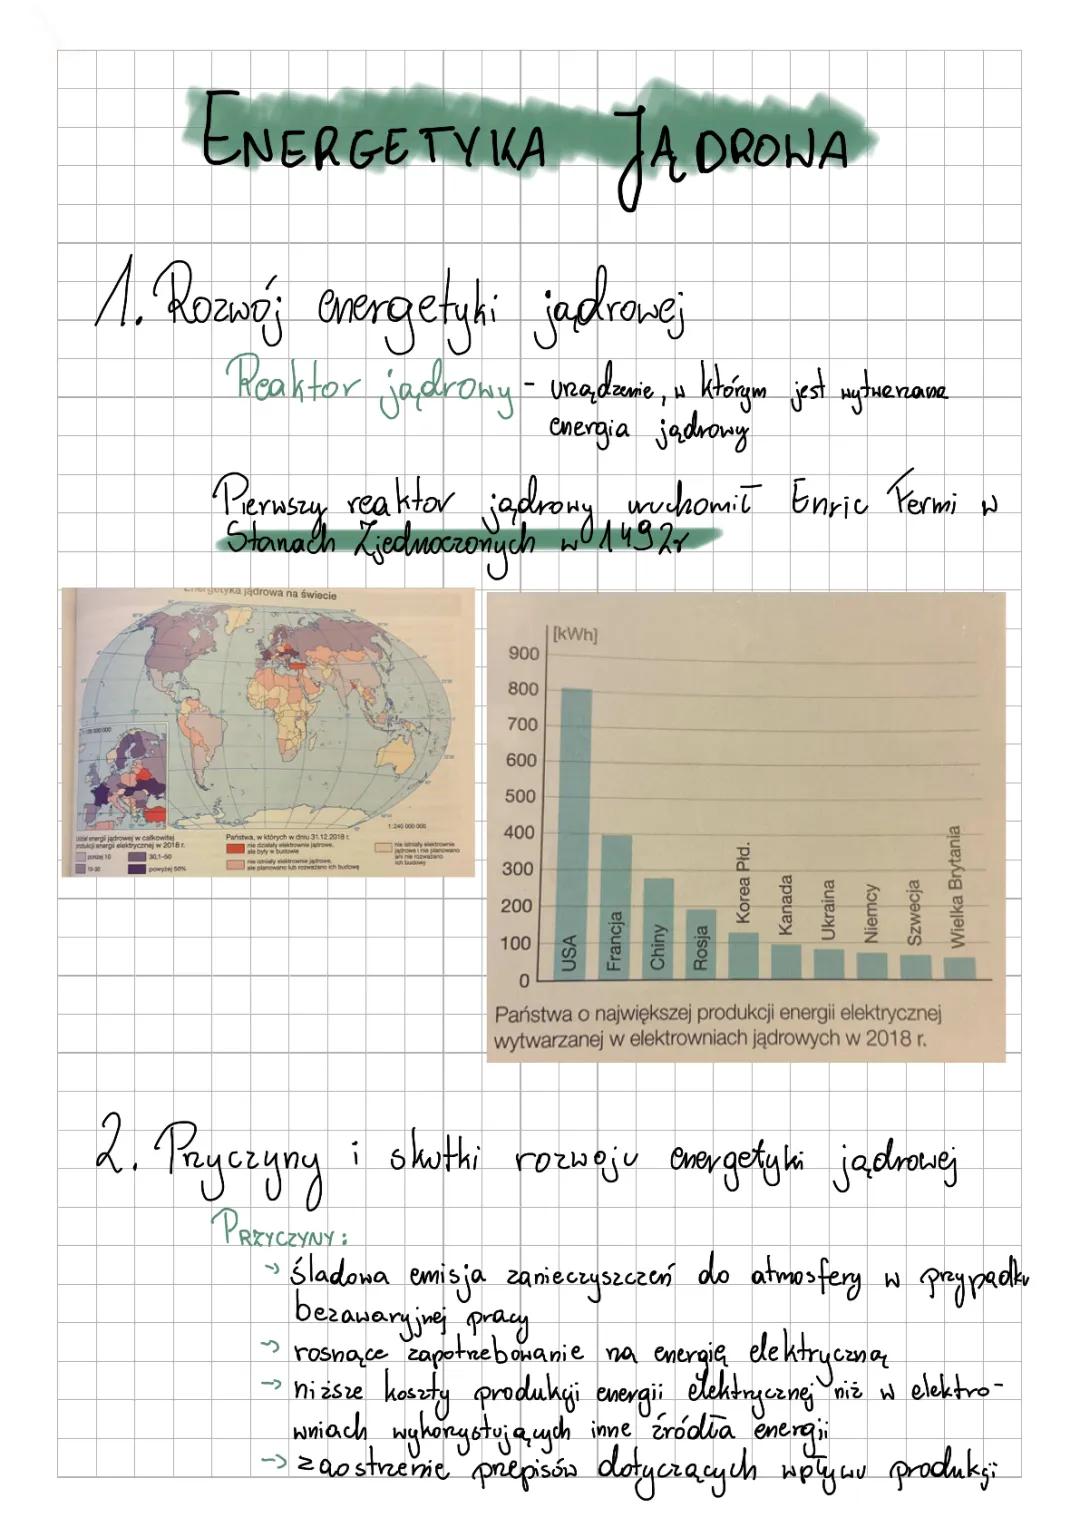 ENERGETYKA JĄDROWA
1. Rozwój energetyki jądrowej
Reaktor jądrowy - urządzenie, w którym jest wytwarzana
energia jądrowy
Pierwszy reaktor jądrowy uruchomił Enric Fermi w
Stanach Zjednoczonych w 1492r
Energetyka jądrowa na świecie
1:240 000 000
Udział energii jądrowej w całkowitej
produkcji energii elektrycznej w 2018 r.
poniżej 10
10-30
30,1-50
powyżej 50%
Państwa, w których w dniu 31.12.2018 r.
nie działały elektrownie jądrowe,
ale były w budowie
nie istniały elektrownie jądrowe,
ale planowano lub rozważano ich budowę
nie istniały elektrownie
jądrowe i nie planowano
ani nie rozważano
ich budowy
[kWh]
900
800
700
600
500
400
300
200
100
0
USA
Francja
Chiny
Rosja
Korea Płd.
Kanada
Ukraina
Niemcy
Szwecja
Wielka Brytania
Państwa o największej produkcji energii elektrycznej
wytwarzanej w elektrowniach jądrowych w 2018 r.
2. Przyczyny i skutki rozwoju energetyki jądrowej
PRZYCZYNY:
→ śladowa emisja zanieczyszczeń do atmosfery w przypadku
bezawaryjnej pracy
→ rosnące zapotrzebowanie na energię elektryczną
→ niższe koszty produkcji energii elektrycznej niż w elektro-
wniach wykorzystujących inne źródła energii
→ zaostrzenie przepisów dotyczących wpływu produkcji